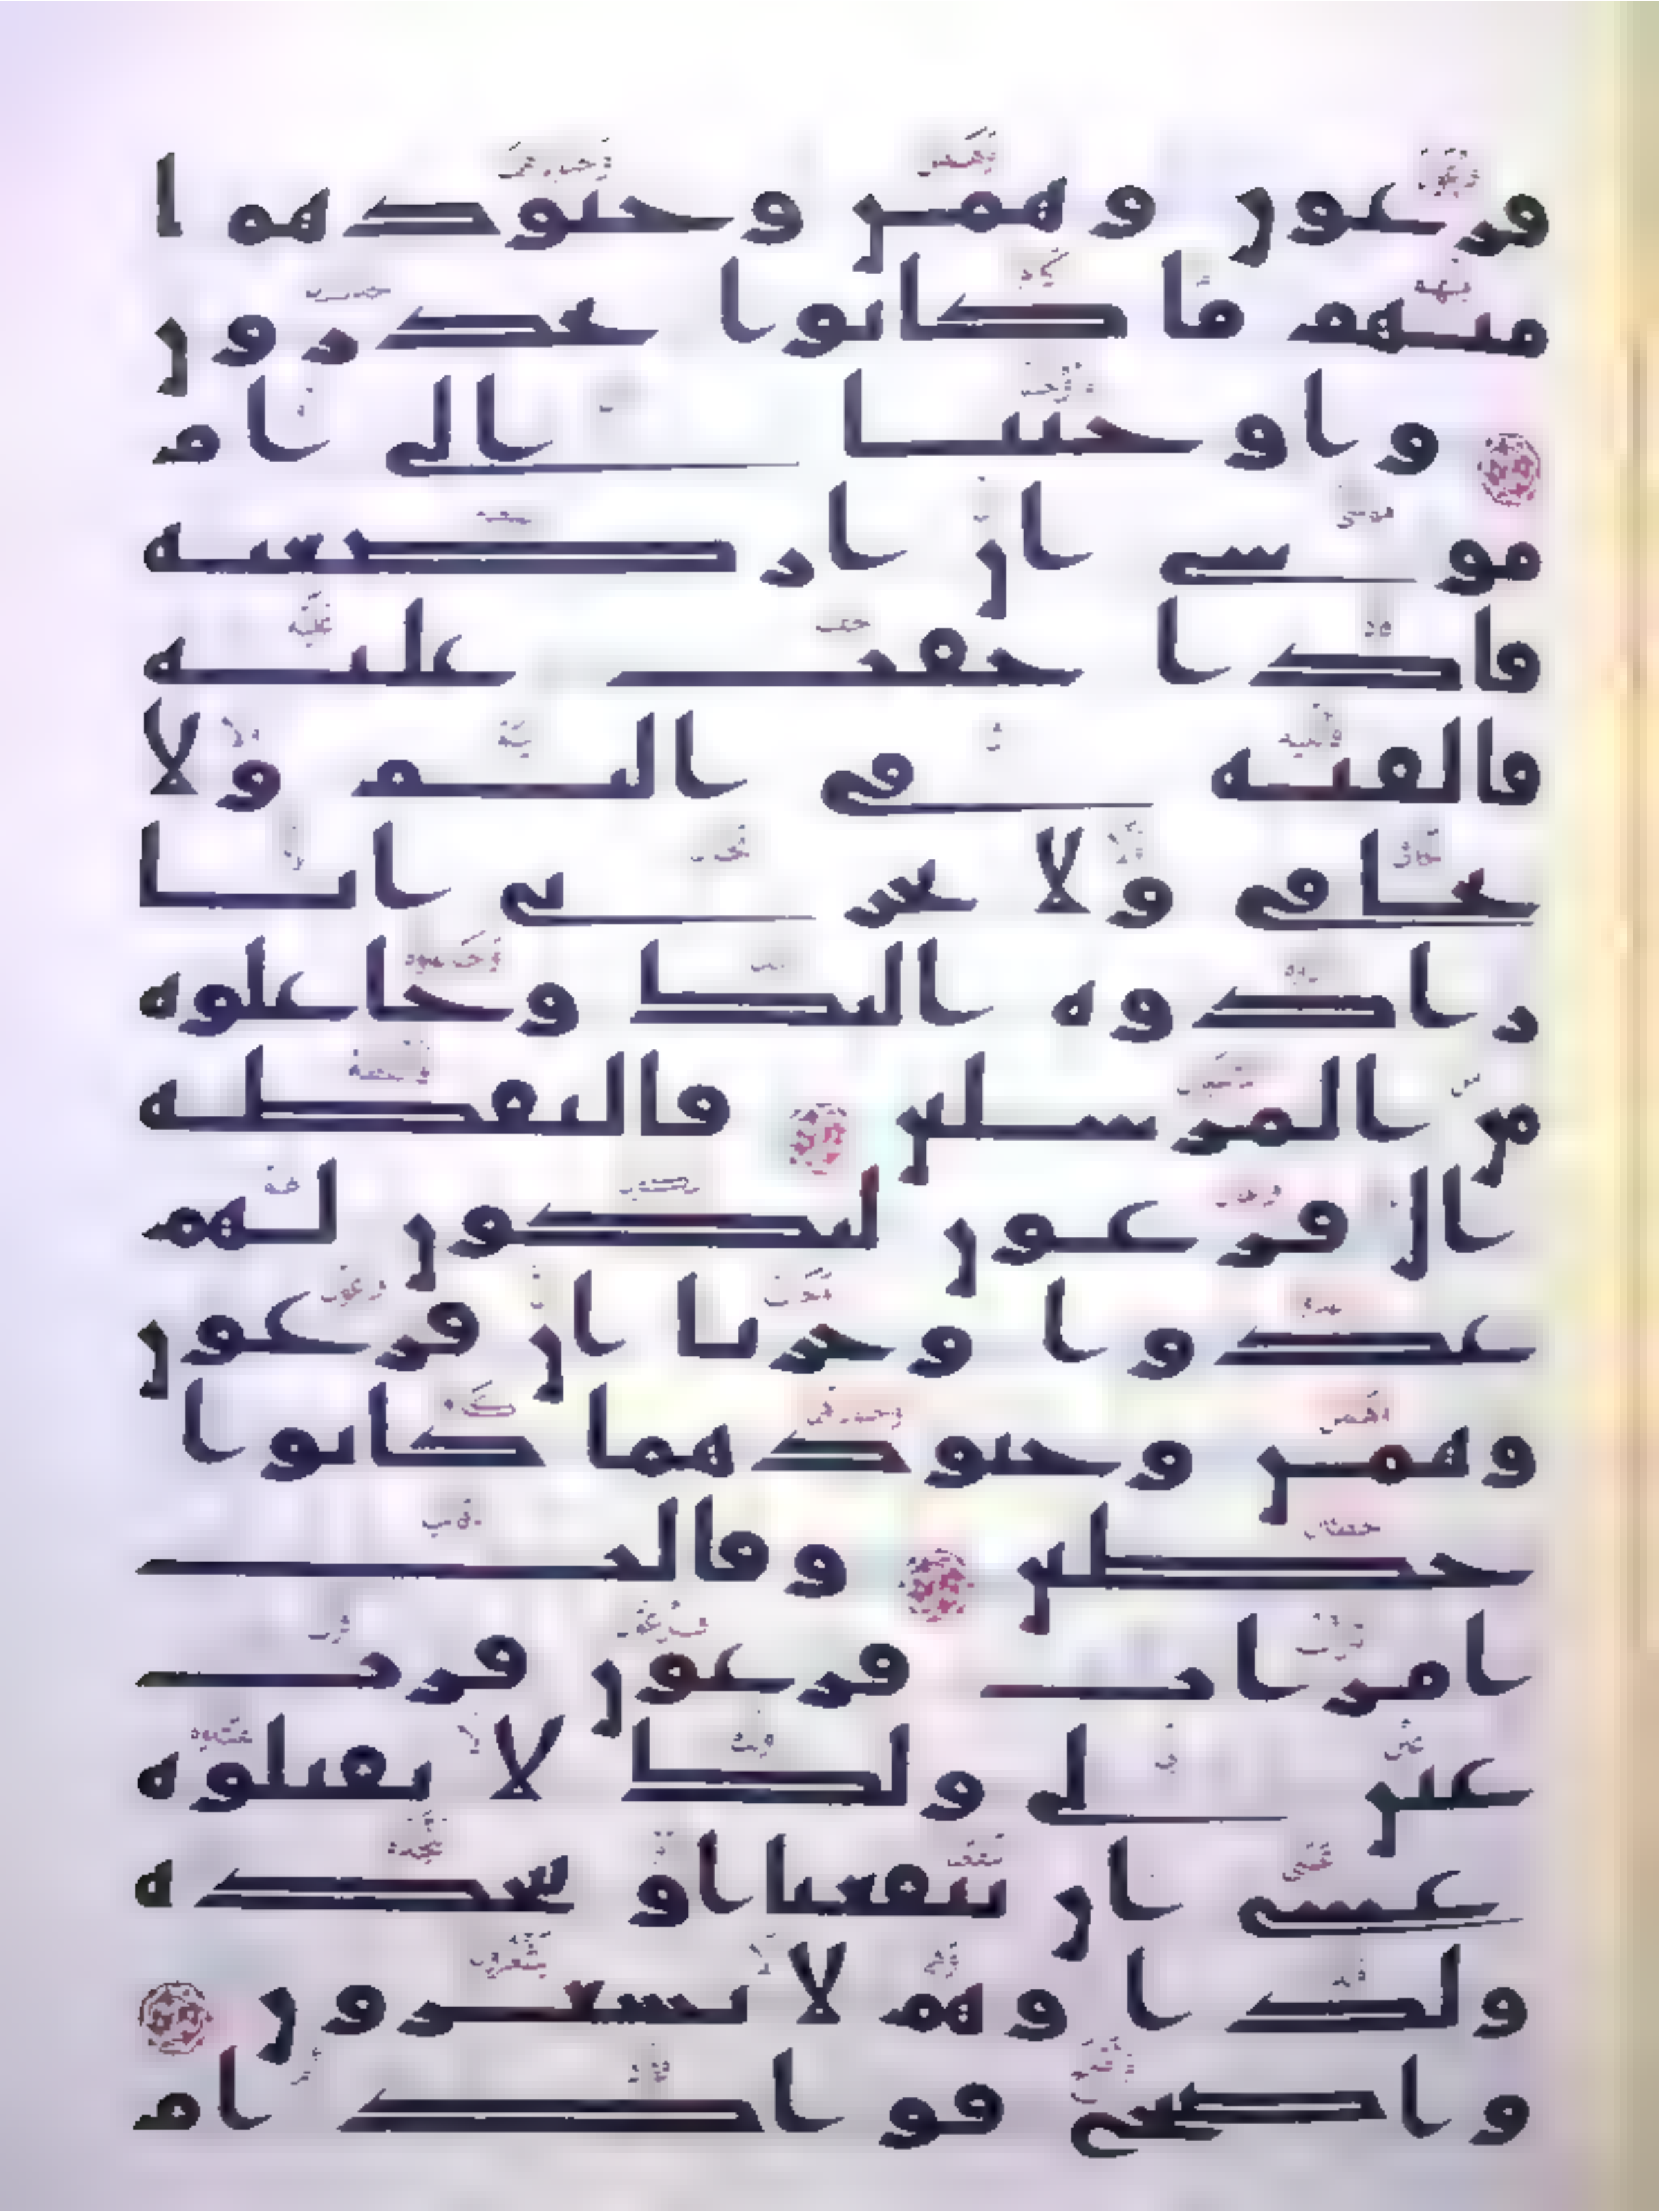 فرعون وهمن وجنودهما
منهم ما كانوا يحذرون
واوحينا الى ام
موسى ان ارضعيه
فاذا خفت عليه
فالقيه في اليم ولا
تخافي ولا تحزني انا
رادوه اليك وجاعلوه
من المرسلين فالتقطه
ال فرعون ليكون لهم
عدوا وحزنا ان فرعون
وهمن وجنودهما كانوا
خطين وقالت
امرات فرعون قرت
عين لي ولك لا تقتلوه
عسى ان ينفعنا او نتخذه
ولدا وهم لا يشعرون
واصبح فواد ام